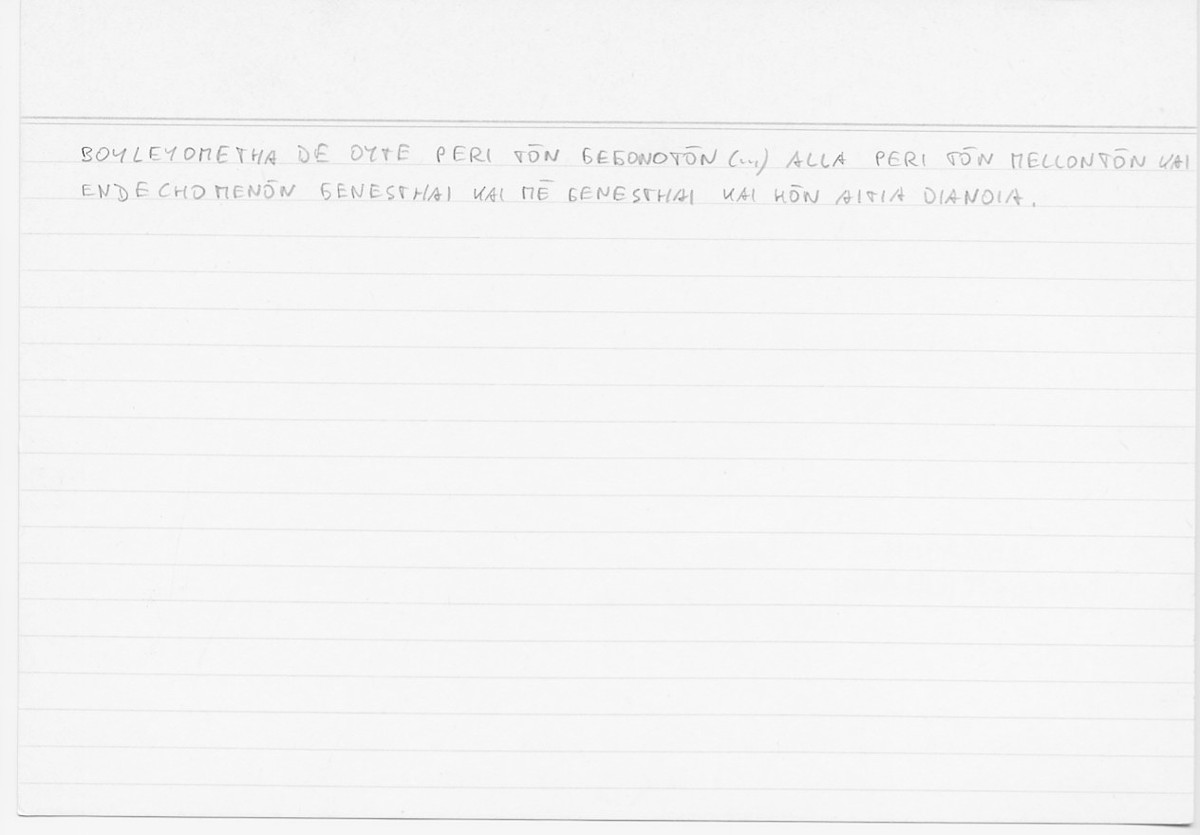 BOYLEYOMETHA DE OYTE PERI TŌN GEGONOTŌN (...) ALLA PERI TŌN MELLONTŌN KAI
ENDECHOMENŌN GENESTHAI KAI MĒ GENESTHAI KAI HŌN AITIA DIANOIA.